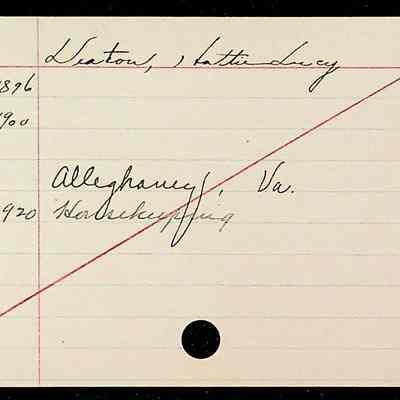 Deaton, Hattie Lucy
1896
1900
Alleghaney, Va.
1920 Housekeeping